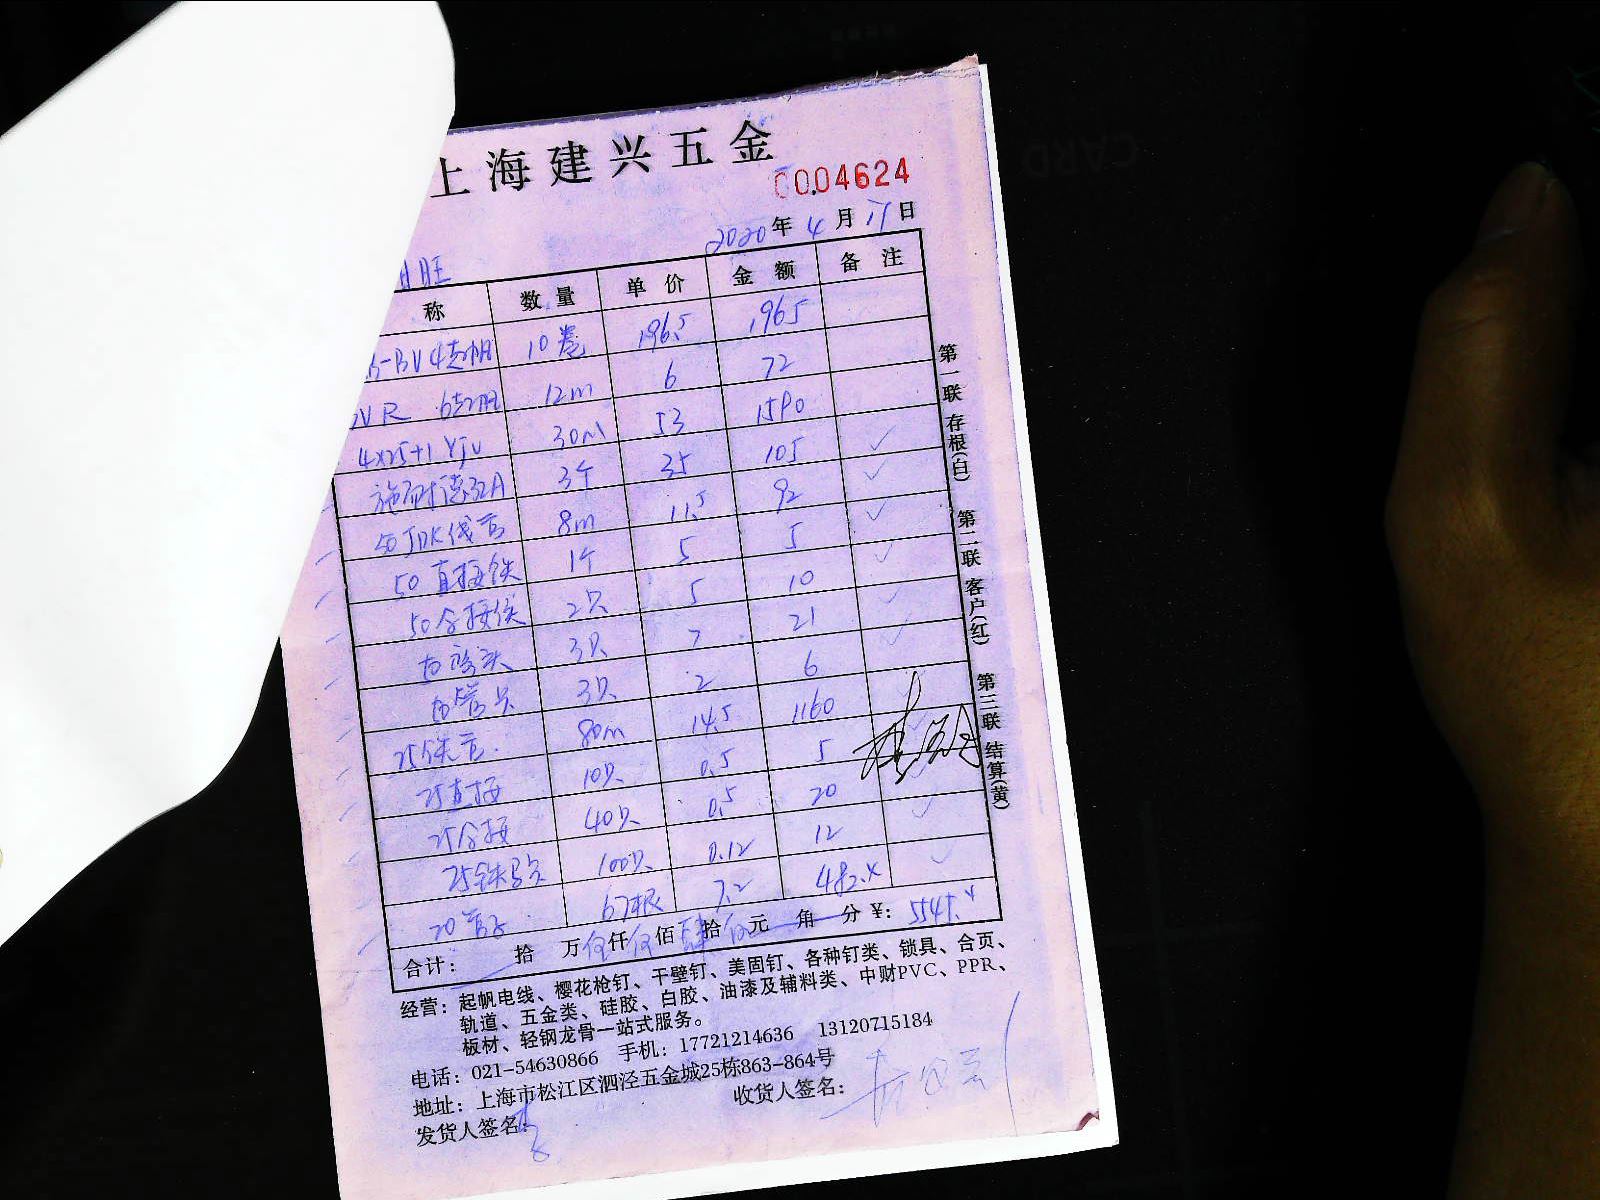 上海建兴五金
0004624
2020年 4月 17日
旺
称 数量 单价 金额 备注
BV 4起帆 10卷 196.5 1965
VR 6起帆 12m 6 72
4x25+1 YJV 30m 53 1590
施耐德32A 3个 35 105
50JDK线管 8m 11.5 92
50直接铁 1个 5 5
50合接铁 2只 5 10
3只 7 21
3只 2 6
25铁管 80m 14.5 1160
25直接 10只 0.5 5
25合接 40只 0.5 20
25铁 100只 0.12 12
20管 67根 7.2 482.4
合计: 拾 万伍仟伍佰肆拾伍元 角 分 ¥: 5545.4
第一联 存根(白) 第二联 客户(红) 第三联 结算(黄)
经营: 起帆电线、樱花枪钉、干壁钉、美固钉、各种钉类、锁具、合页、
轨道、五金类、硅胶、白胶、油漆及辅料类、中财PVC、PPR、
板材、轻钢龙骨一站式服务。
电话: 021-54630866 手机: 17721214636 13120715184
地址: 上海市松江区泗泾五金城25栋863-864号
发货人签名: 收货人签名:
CARD